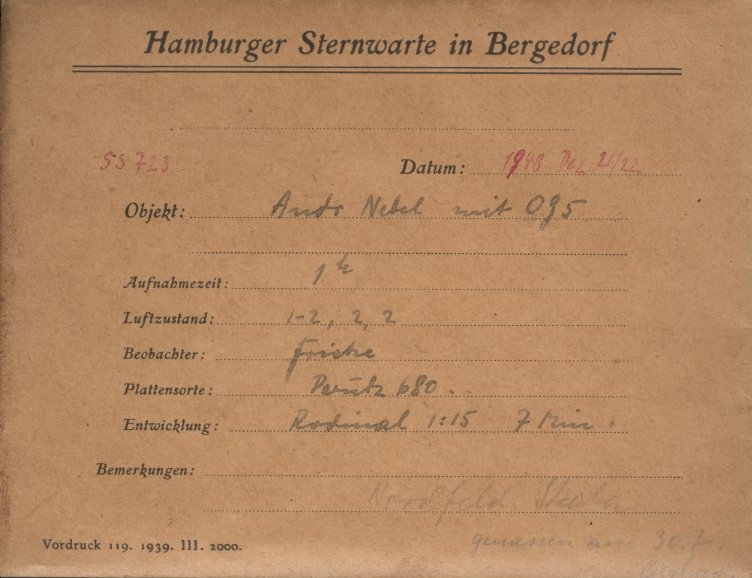 Hamburger Sternwarte in Bergedorf
SS 723 Datum: 1948 Dez 21/22
Objekt: Andr Nebel mit OG5
Aufnahmezeit: 1h
Luftzustand: 1-2, 2, 2
Beobachter:
Plattensorte: Perutz 680
Entwicklung: Rodinal 1:15 7 Min
Bemerkungen:
Nordfeld Skala
gemessen am 30.7.
Vordruck 119. 1939. III. 2000.